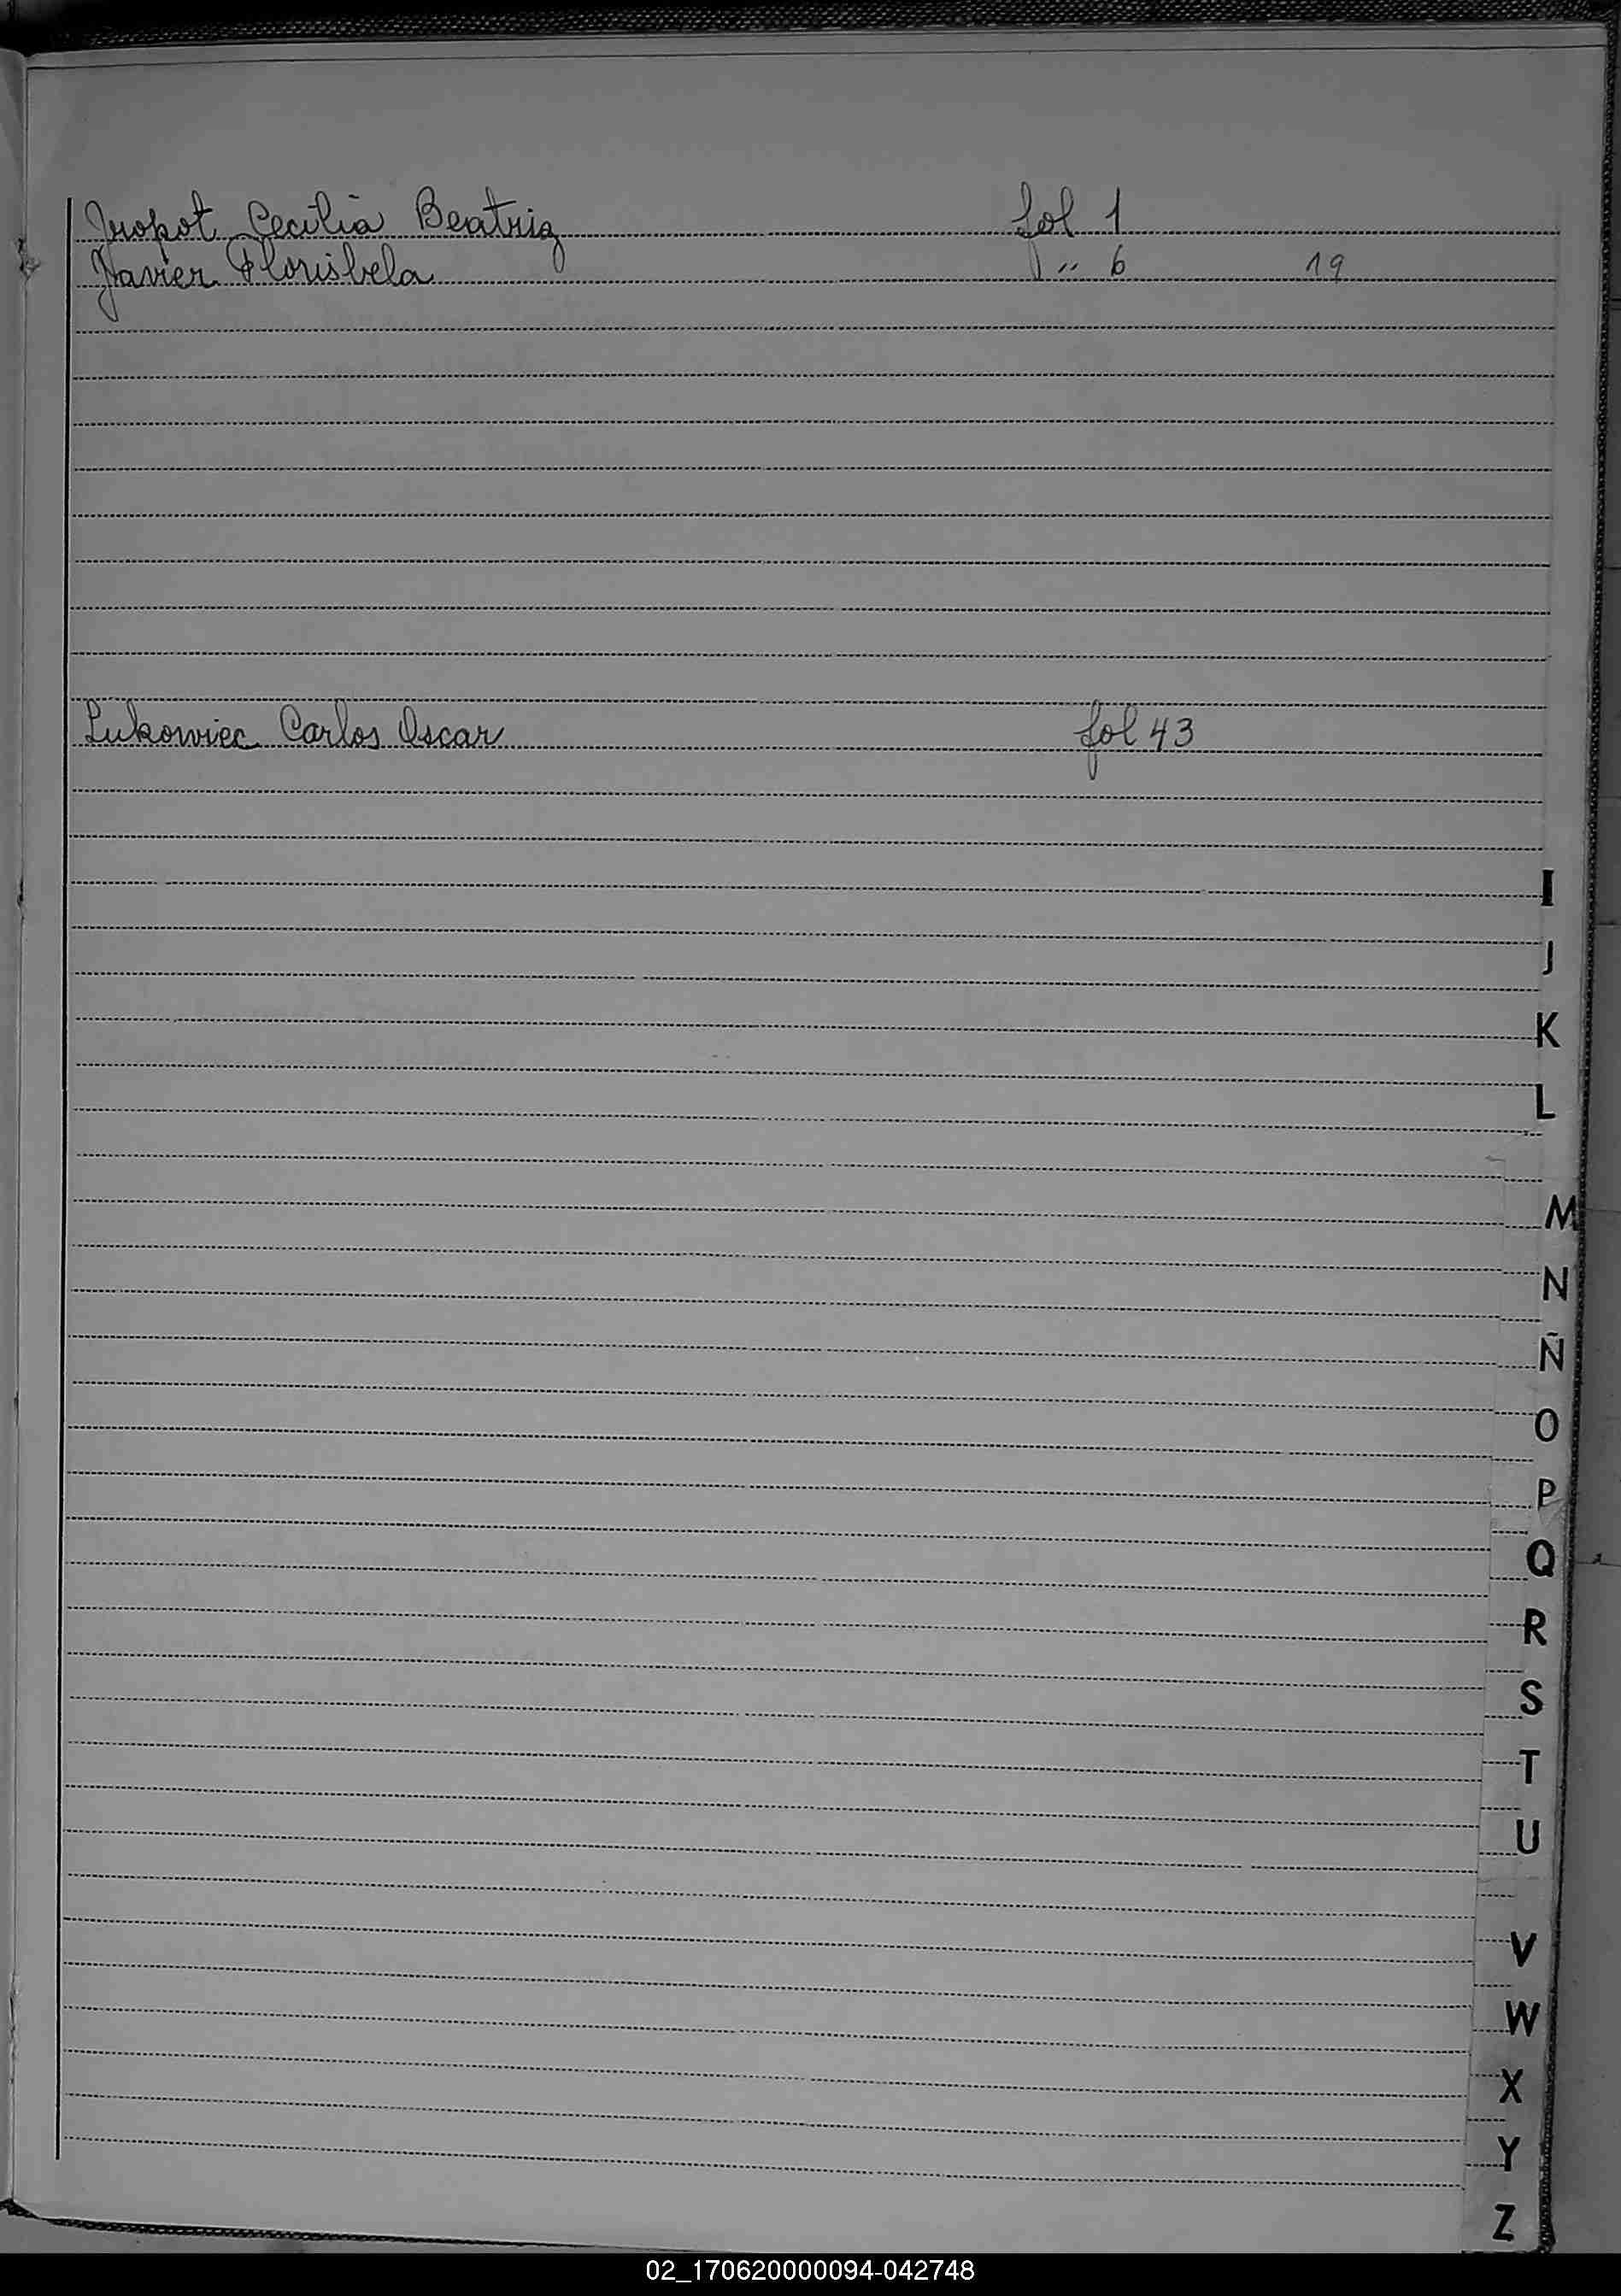 Iropot Cecilia Beatriz fol 1
Javier Florisbela " 6 19
Lukowiec Carlos Oscar fol 43
I
J
K
L
M
N
Ñ
O
P
Q
R
S
T
U
V
W
X
Y
Z
02_170620000094-042748